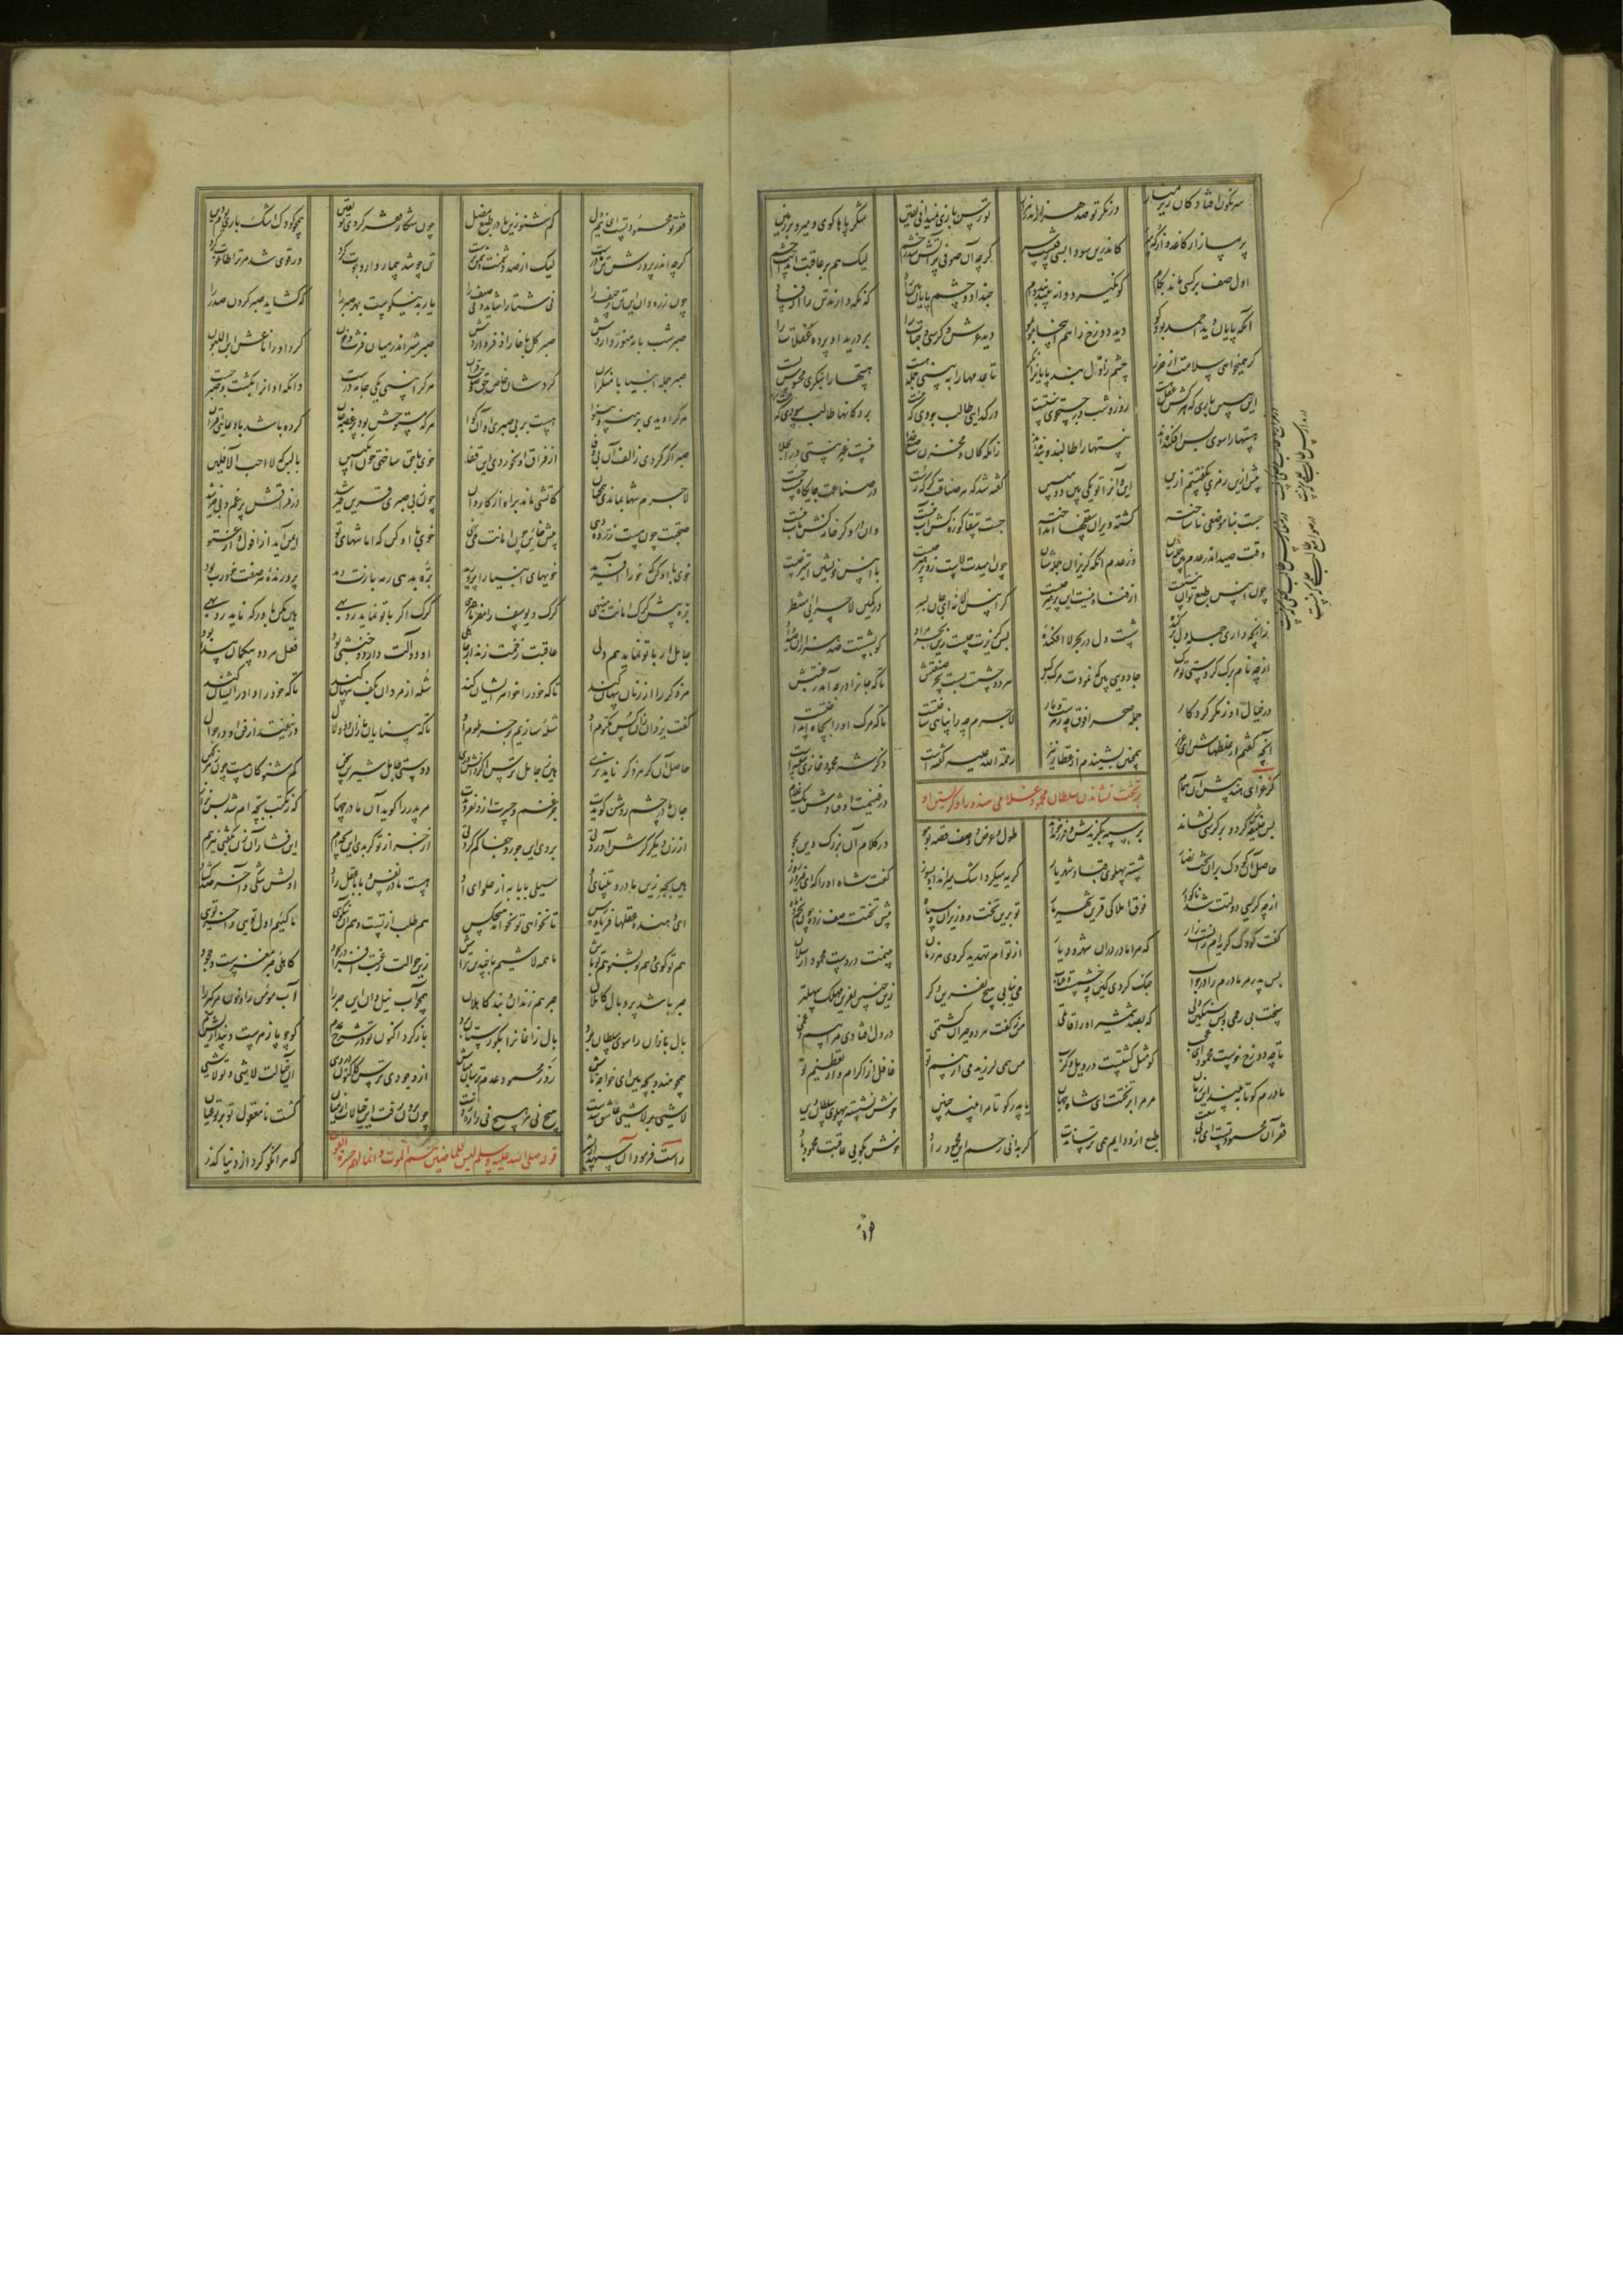 سرنگون افتادگان را زیر منار در نگر تو صد هزار اندر هزار تو رسن بازی نمیدانی یقین شکر پاها گوی و میرو بر زمین
پر مساز از کاغذ و از که مپر کاندرین سودا بسی رفتست سر گرچه آن صوفی پر آتش شد ز خشم لیک هم بر عاقبت انداخت چشم
اول صف بر کسی ماند بکام کو نگیرد دانه بیند بند دام حبذا دو چشم پایان بین راد که نگه دارند تن را از فساد
آنکه پایان دید احمد بود کو دید دوزخ را هم اینجا مو بمو دید عرش و کرسی و جنات را بر درید او پرده غفلات را
گر همیخواهی سلامت از ضرر چشم ز اول بند پایان را نگر تا عدمها را ببینی جمله هست هستها را بنگری محسوس پست
این ببین باری که هر کش عقل هست روز و شب در جستجوی نیستست در گدایی طالب جودی که نیست بر دکانها طالب سودی که نیست
هستها را سوی پس افکنده‌اند نیستها را طالبند و بنده‌اند زانکه کان و مخزن صنع خدا نیست غیر نیستی در انجلا
پیش ازین رمزی بگفتیم ازین این و آن را تو یکی بین دو مبین گفته شد که هر صناعت‌گر که رست در صناعت جایگاه نیست جست
جست بنا موضعی ناساخته گشته ویران سقفها انداخته جست سقا کوزه کش آب نیست وان دروگر خانه کش باب نیست
وقت صید اندر عدم بد حمله‌شان از عدم آنگه گریزان جمله‌شان چون امیدت لاست زو پرهیز چیست با انیس طمع خود استیز چیست
چون انیس طبع تو آن نیستیست از فنا و نیست این پرهیز چیست گر انیس لا نه‌ای جان بسر در کمین لا چرایی منتظر
زانچه داری جمله دل برکنده شست دل در بحر لا افکنده پس گریزت چیست زین بحر مراد کو بشستت صد هزاران صید داد
از چه نام برگ کردستی تو مرگ جادویی بین که نمودت مرگ برگ هر دو چشمت بست سحر صنعتش تا که جان را در چه آمد رغبتش
در خیال او ز مکر کردگار جمله صحرا فوق چه زهرست و مار لاجرم چه را پناهی ساختست تا که مرگ او را بچاه انداختست
آنچه گفتم از غلطهات ای عزیز هم بر این بشنو دم عطار نیز رحمة الله علیه گفته است ذکر شه محمود غازی سفته است
کز غزای هند پیش آن همام در غنیمت اوفتادش یک غلام
بر تخت نشاندن سلطان محمود غلامی هندو را و گریستن او
پس خلیفه‌ش کرد و بر کرسی نشاند بر سپه بگزیدش و فرزند خواند طول و عرض و وصف قصه تو بتو در کلام آن بزرگ دین بجو
حاصل آن کودک بران تخت نضار شسته پهلوی قباد شهریار گریه میکرد اشک میراند او بسوز گفت شاه او را که ای فیروز روز
از چه گریی دولتت شد ناگوار فوق املاکی قرین شهریار تو برین تخت و وزیران و سپاه پیش تختت صف زده چون نجم و ماه
گفت کودک گریه‌ام زانست زار که مرا مادر دران شهر و دیار از توام تهدید کردی هر زمان بینمت در دست محمود ارسلان
پس پدر مر مادرم را در جواب جنگ کردی کین چه خشمست و عذاب می نیابی هیچ نفرین دگر زین چنین نفرین مهلک سهلتر
سخت بی رحمی و بس سنگین دلی که بصد شمشیر او را قاتلی من ز گفت هر دو حیران گشتمی در دل افتادی مرا بیم و غمی
تا چه دوزخ خوست محمود ای عجب که مثل گشتست در ویل و کرب من همی لرزیدمی از بیم تو غافل از اکرام و از تعظیم تو
مادرم کو تا ببیند این زمان مر مرا بر تخت ای شاه جهان یا پدر کو تا مرا بیند چنین خوش نشسته پهلوی سلطان دین
فقر آن محمود تست ای بی سعت طبع ازو دایم همی ترساندت گر بدانی رحم این محمود راد خوش بگویی عاقبت محمود باد
فقر تو محمود تست ای بیم دل کم شنو زین مادر طبع مضل چون شکار فقر کردی تو یقین همچو کودک اشک باری یوم دین
گرچه اندر پرورش تن مادرست لیک از صد دشمنت دشمن‌ترست تن چو شد بیمار داروجوت کرد ور قوی شد مر ترا طاغوت کرد
چون زره دان این تن پر حیف را نی شتا را شاید و نی صیف را یار بد نیکوست بهر صبر را که گشاید صبر کردن صدر را
صبر شب با مه منور داردش صبر گل با خار اذفر داردش صبر شیر اندر میان فرث و خون کرد او را ناعش ابن اللبون
صبر جمله انبیا با منکران کردشان خاص حق و صاحبقران هر کرا بینی یکی جامه درست دانکه او آن را بکسب و صبر جست
هر کرا دیدی برهنه و بینوا هست بر بی صبری او آن گوا هر که مستوحش بود پر غصه جان کرده باشد با دغایی اقتران
صبر اگر کردی ز الف آن بی وفا از فراق او نخوردی این قفا خوی با حق ساختی چون انگبین با لبن که لا احب الآفلین
لاجرم تنها نماندی همچنان کاتشی مانده براه از کاروان چون ز بی صبری قرین غیر شد در فراقش پر غم و بی خیر شد
صحبتت چون هست زر ده‌دهی پیش خاین چون امانت می‌نهی خوی با او کن که امانتهای تو ایمن آید از افول و از عتو
خوی با او کن که خو را آفرید خویهای انبیا را پرورید بره بدهی رمه بازت دهد پرورنده هر صفت خود رب بود
بره پیش گرگ امانت می‌نهی گرگ و یوسف را مفرما همرهی گرگ اگر با تو نماید روبهی هین مکن باور که ناید زو بهی
جاهل ار با تو نماید همدلی عاقبت زخمت زند از جاهلی او دو آلت دارد و خنثی بود فعل هر دو بیگمان پیدا شود
او ذکر را از زنان پنهان کند تا که خود را خواهر ایشان کند شله از مردان بکف پنهان کند تا که خود را جنس آن مردان کند
گفت یزدان زان کس مکتوم او شله سازیم بر خرطوم او تا که بینایان ما زان ذو دلال در نیفتند از فن او در جوال
حاصل آن کز هر ذکر ناید نری هین ز جاهل ترس اگر دانش‌وری دوستی جاهل شیرین سخن کم شنو کان هست چون سم کهن
جان مادر چشم روشن گویدت جز غم و حسرت ازو نفزودت مر پدر را گوید آن مادر جهار که ز مکتب بچه‌ام شد بس نزار
از زن دیگر گرش آوردیی بروی این جور و جفا کم کردیی از جز تو گر بدی این بچه‌ام این فشار آن زن بگفتی نیز هم
هین بجه زین مادر و تیبای او سیلی بابا به از حلوای او هست مادر نفس و بابا عقل راد اولش تنگی و آخر صد گشاد
ای دهنده عقلها فریاد رس تا نخواهی تو نخواهد هیچکس هم طلب از تست و هم آن نیکوی ما کییم اول تویی آخر توی
هم تو گوی و هم تو بشنو هم تو باش ما همه لاشیم با چندین تراش زین حوالت رغبت افزا در سجود کاهلی جبر مفرست و خمود
جبر باشد پر و بال کاملان جبر هم زندان و بند کاهلان همچو آب نیل دان این جبر را آب مومن را و خون مر گبر را
بال بازان را سوی سلطان برد بال زاغان را بگورستان برد باز گرد اکنون تو در شرح عدم کو چو پازهرست و پنداریش سم
همچو هندو بچه هین ای خواجه تاش رو ز محمود عدم ترسان مباش از وجودی ترس کاکنون در ویی آن خیالت لاشی و تو لاشیی
لاشیی بر لاشیی عاشق شدست هیچ نی مر هیچ نی را ره زدست چون برون رفت این خیالات از میان گشت نامعقول تو بر تو عیان
قوله صلی الله علیه وسلم لیس للماضین هم الموت و انما لهم حسرة الفوت
راست فرمود آن سپهدار بشر که هر انکو کرد از دنیا گذر